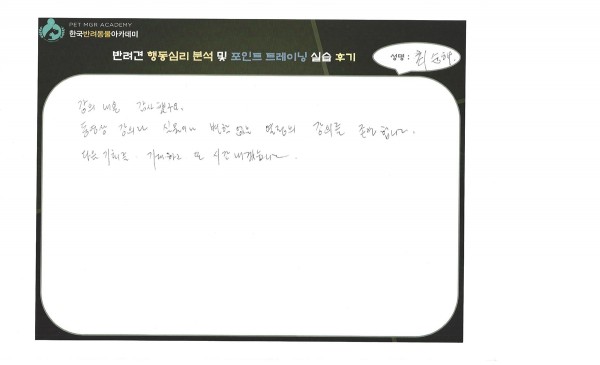 PET MGR ACADEMY
한국반려동물아카데미
반려견 행동심리 분석 및 포인트 트레이닝 실습 후기
성명 : 최순해.
강의 내용 감사했구요.
동영상 강의나 실습이나 변함 없는 열정의 강의를 존경합니다.
다음 기회도 기대하고 또 시간 내겠습니다.